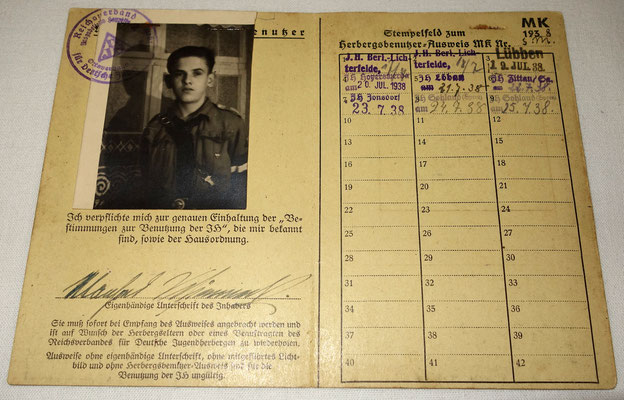 Reichsverband
für Deutsche
enutzer
Ich verpflichte mich zur genauen Einhaltung der „Be-
stimmungen zur Benutzung der JH“, die mir bekannt
sind, sowie der Hausordnung.
Manfred
Eigenhändige Unterschrift des Inhabers
Sie muß sofort bei Empfang des Ausweises angebracht werden und
ist auf Wunsch der Herbergseltern oder eines Beauftragten des
Reichsverbandes für Deutsche Jugendherbergen zu wiederholen.
Ausweise ohne eigenhändige Unterschrift, ohne mitgeführtes Licht-
bild und ohne Herbergsbenutzer-Ausweis sind für die
Benutzung der JH ungültig.
Stempelfeld zum
Herbergsbenutzer-Ausweis MK Nr.
MK
193 8
J. H. Berl.-Lich-
terfelde,
J. H. Berl. Lich-
terfelde,
3
Lübben
1 9. JUL. 38
JH Hoyerswerda
am 20 JUL. 1938
JH Löbau
am 21.7.38
JH Zittau/Sa.
am
JH Jonsdorf
23.7.38
JH Sohland
JH Sohland
25.7.38.
10
11
12
13
14
15
16
17
18
19
20
21
22
23
24
25
26
27
28
29
30
31
32
33
34
35
36
37
38
39
40
41
42